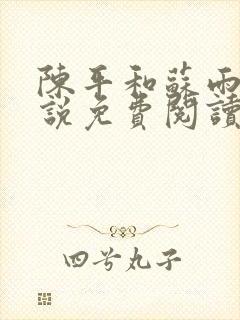 陳平和蘇雨
說免費閱讀
四兮丸子